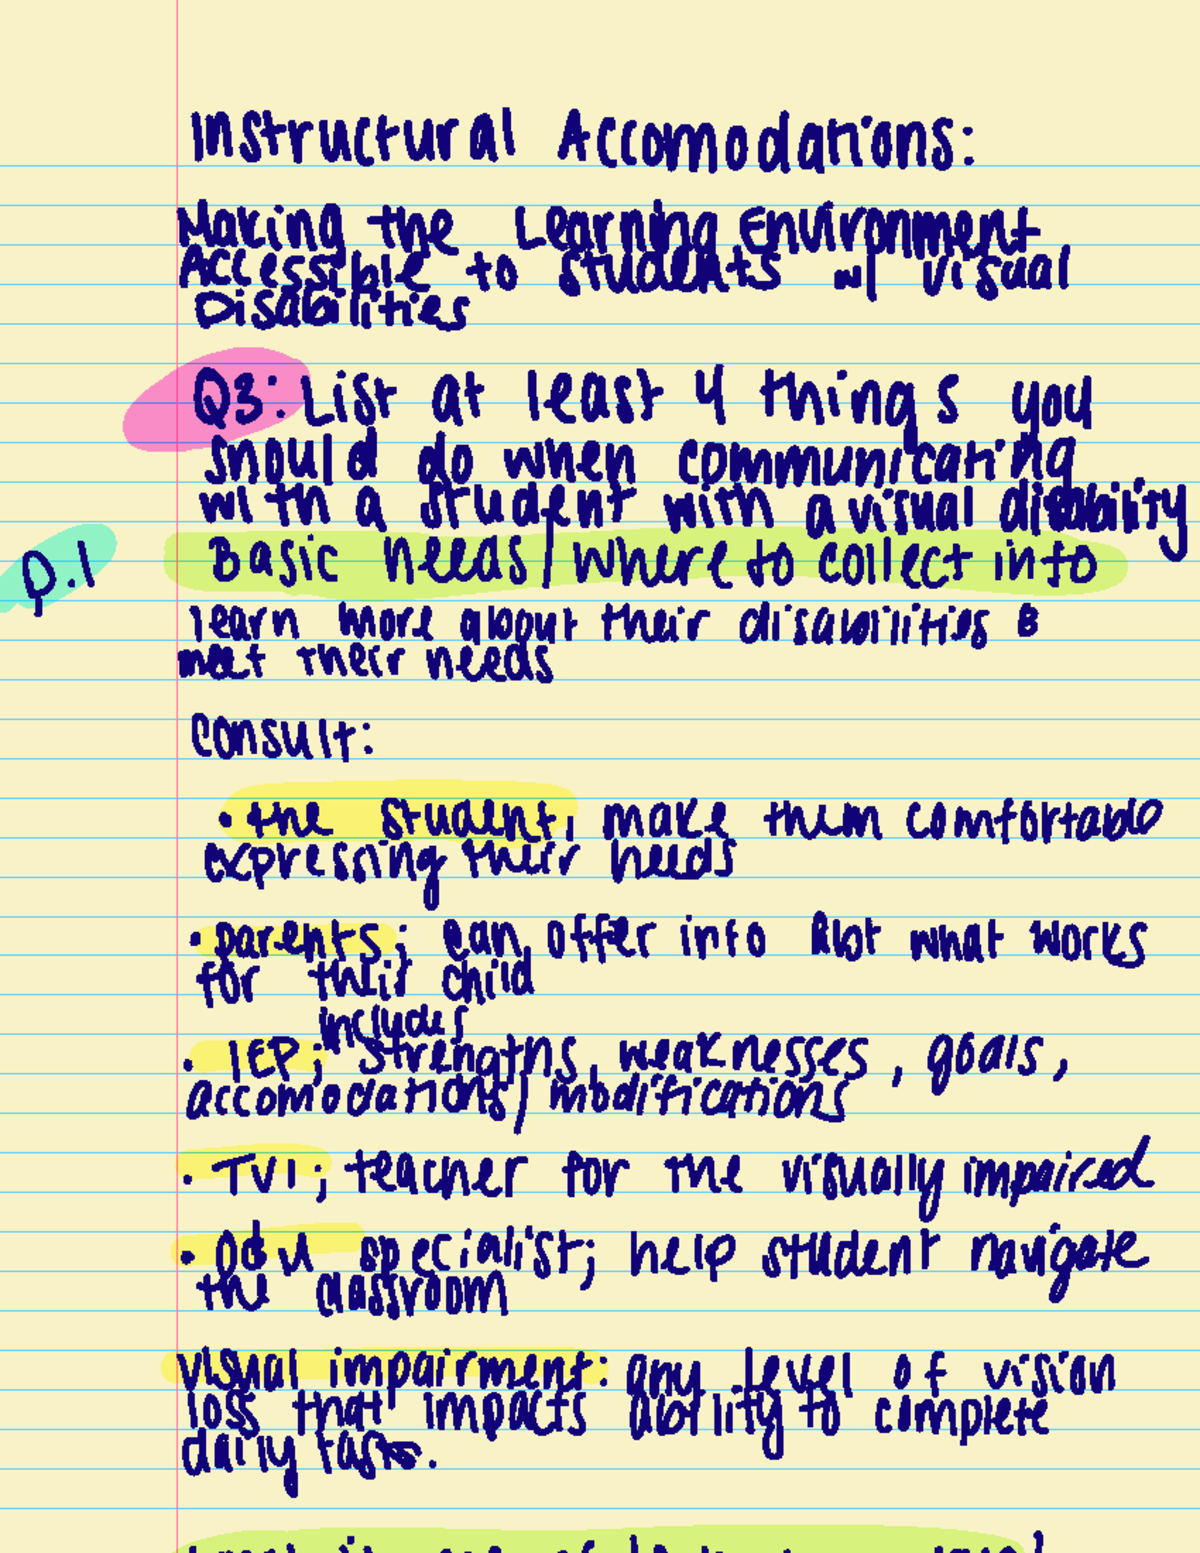 Instructural Accomodations:
Making the Learning Environment
Accessible to students w/ visual
Disabilities
Q3: List at least 4 things you
should do when communicating
with a student with a visual disability
p.1
Basic needs/where to collect info
learn more about their disabilities &
meet their needs
consult:
• the student, make them comfortable
expressing their needs
• parents; can offer info Abt what works
for their child
includes
• IEP; strengths, weaknesses, goals,
accomodations/modifications
• TVI; teacher for the visually impaired
• O&M specialist; help student navigate
the classroom
visual impairment: any level of vision
loss that impacts ability to complete
daily tasks.